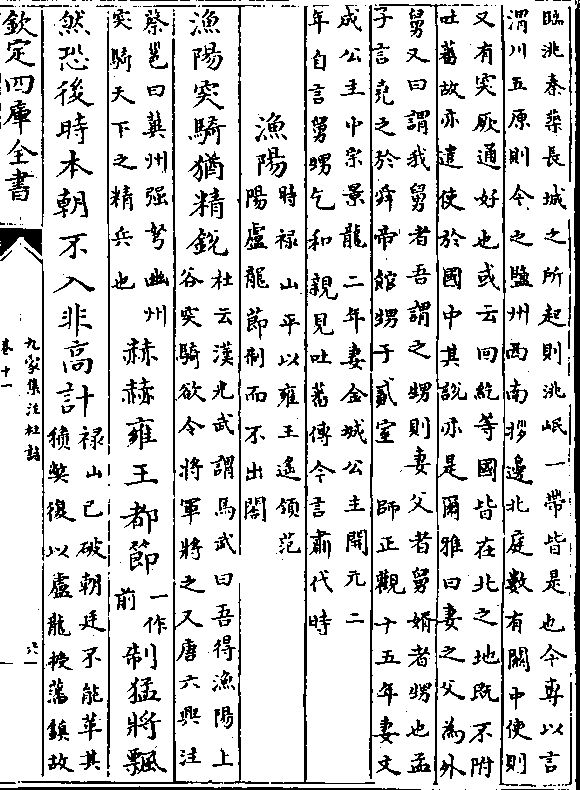 臨洮秦築長城之所起則洮岷一帶皆是也今専以言
渭川五原則今之鹽州西南接邊北庭數有關中使則
又有突厥通好也或云回紇等國皆在北之地既不附
吐蕃故亦遣使於國中其説亦是爾雅曰妻之父為外
舅又曰謂我舅者吾謂之甥則妻父者舅婿者甥也孟
子言堯之於舜帝館甥于貳室 師正觀十五年妻文
成公主中宗景龍二年妻金城公主開元二
年自言舅甥乞和親見吐蕃傳今言肅代時
漁陽時禄山平以雍王遙領范
陽盧龍節制而不出閤
漁陽突騎猶精鋭杜云漢光武謂馬武曰吾得漁陽上
谷突騎欲令將軍將之又唐六典注
蔡邕曰冀州强弩幽州
突騎天下之精兵也 赫赫雍王都節一作
前制猛將飄
然恐後時本朝不入非高計禄山已破朝廷不能革其
積獘復以盧龍授蕩鎮故
欽定四庫全書
九家集注杜詩
卷十一